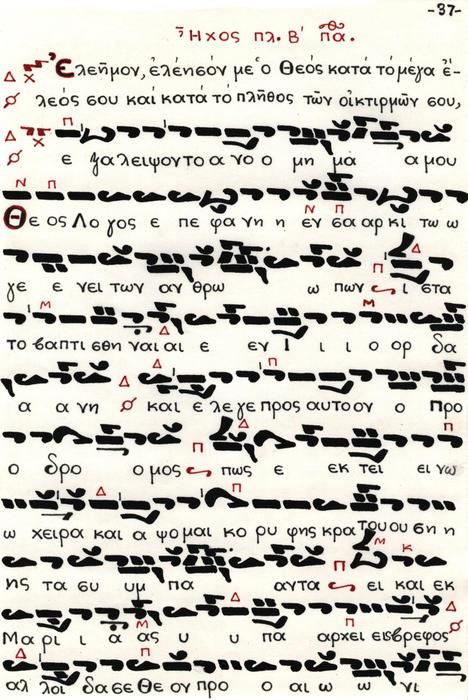 -37-
Ἦχος πλ. Β΄ πα.
Ἐλεῆμον, ἐλέησόν με ὁ Θεός κατά τό μέγα ἔ-
λεός σου καί κατά τό πλῆθος τῶν οἰκτιρμῶν σου,
Π
ε ξα λει ψον το α νο ο μη μα α μου
Ν Π Ν Π
Θε ος Λο γος ε πε φα νη η εν σα αρ κι τω ω
Π Δ
γε ε νει των αν θρω ω πων ι στα
Μ Δ Μ
το βαπτι σθη ναι αι ε εν Ι ι ι ο ορ δα
Δ Π
α α νη και ε λε γε προς αυτο ον ο Προ
Π Δ Π
ο δρο ο μος πως ε εκ τει ει νω
Δ Π
ω χειρα και α ψο μαι κο ρυ φης κρα του ου ση η
Π Μ Κ
ης τα συ υμ πα αντα ει και εκ
Μ Δ Π Δ
Μα ρι ι α ας υ υ πα αρχει εις βρεφος
Δ Π
αλ λοι δα σε Θε ον προ ο αι ω ω νι